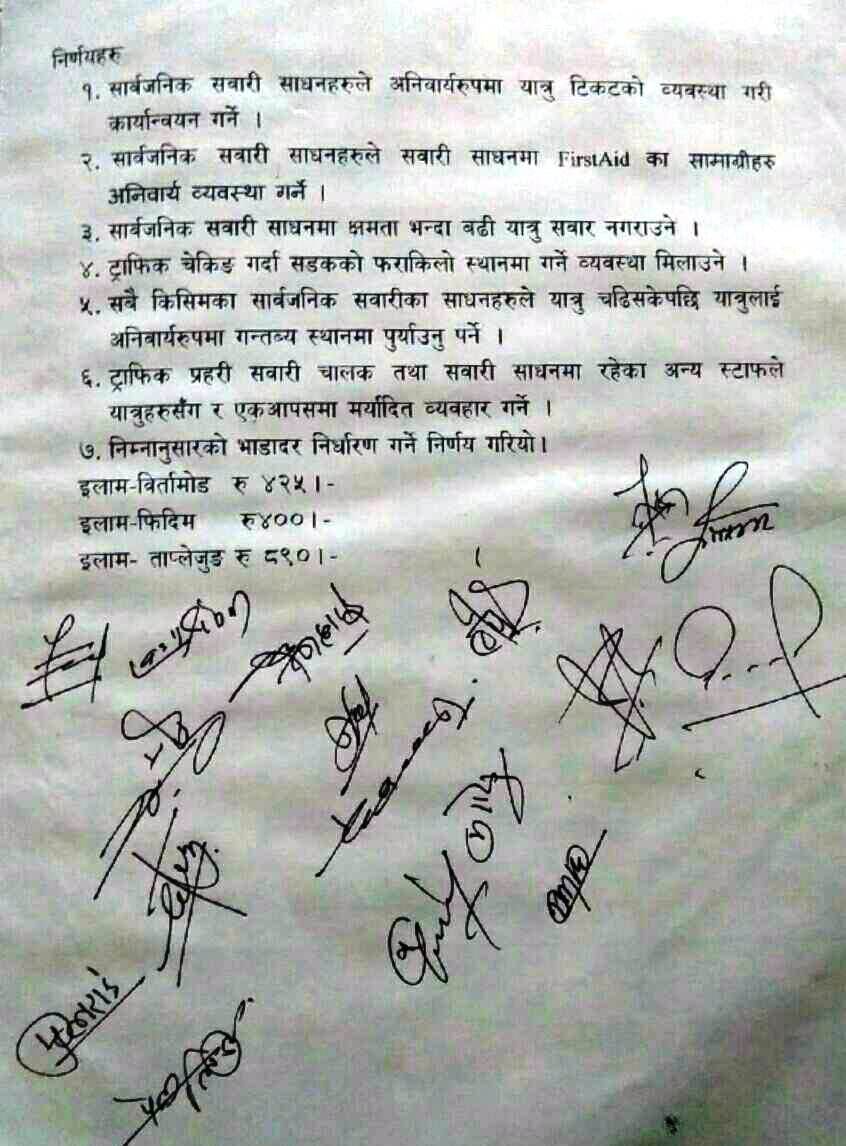 निर्णयहरु
१. सार्वजनिक सवारी साधनहरुले अनिवार्यरुपमा यात्रु टिकटको व्यवस्था गरी
कार्यान्वयन गर्ने ।
२. सार्वजनिक सवारी साधनहरुले सवारी साधनमा FirstAid का सामाग्रीहरु
अनिवार्य व्यवस्था गर्ने ।
३. सार्वजनिक सवारी साधनमा क्षमता भन्दा बढी यात्रु सवार नगराउने ।
४. ट्राफिक चेकिङ गर्दा सडकको फराकिलो स्थानमा गर्ने व्यवस्था मिलाउने ।
५. सबै किसिमका सार्वजनिक सवारीका साधनहरुले यात्रु चढिसकेपछि यात्रुलाई
अनिवार्यरुपमा गन्तब्य स्थानमा पुर्याउनु पर्ने ।
६. ट्राफिक प्रहरी सवारी चालक तथा सवारी साधनमा रहेका अन्य स्टाफले
यात्रुहरुसँग र एकआपसमा मर्यादित व्यवहार गर्ने ।
७. निम्नानुसारको भाडादर निर्धारण गर्ने निर्णय गरियो।
इलाम-विर्तामोड रु ४२५।-
इलाम-फिदिम रु४००।-
इलाम- ताप्लेजुङ रु ८९०।-